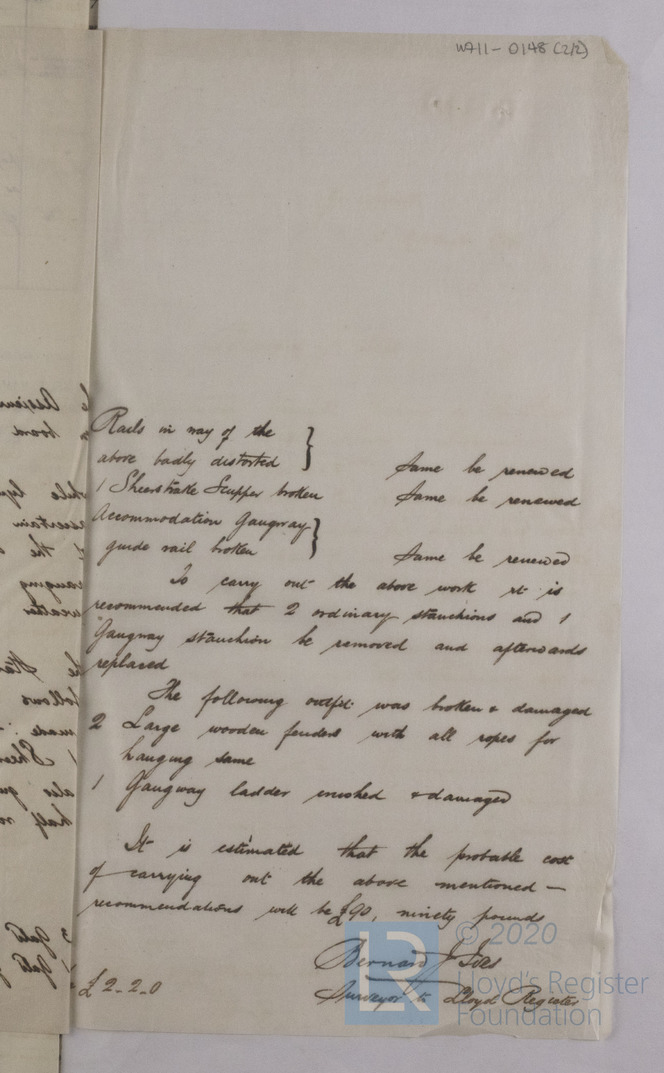 WA11-0148 (2/2)
Rails in way of the
above badly distorted } Same be renewed
1 Sheerstrake Scupper broken Same be renewed
Accommodation Gangway
guide rail broken } Same be renewed
To carry out the above work it is
recommended that 2 ordinary stanchions and 1
Gangway stanchion be removed and afterwards
replaced
The following outfit was broken & damaged
2 Large wooden fenders with all ropes for
hanging same
1 Gangway ladder crushed & damaged
It is estimated that the probable cost
of carrying out the above mentioned —
recommendations will be £90, ninety pounds
Bernard J Ives
Surveyor to Lloyds Register
£2-2-0
© 2020
Lloyd's Register
Foundation
LR